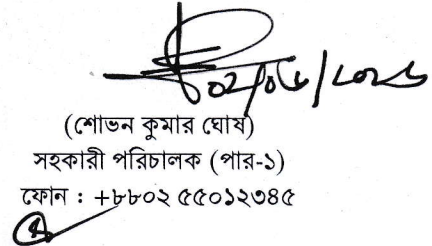 ০২/০৬/২০২৬
(শোভন কুমার ঘোষ)
সহকারী পরিচালক (পার-১)
ফোন : +৮৮০২ ৫৫০১২৩৪৫